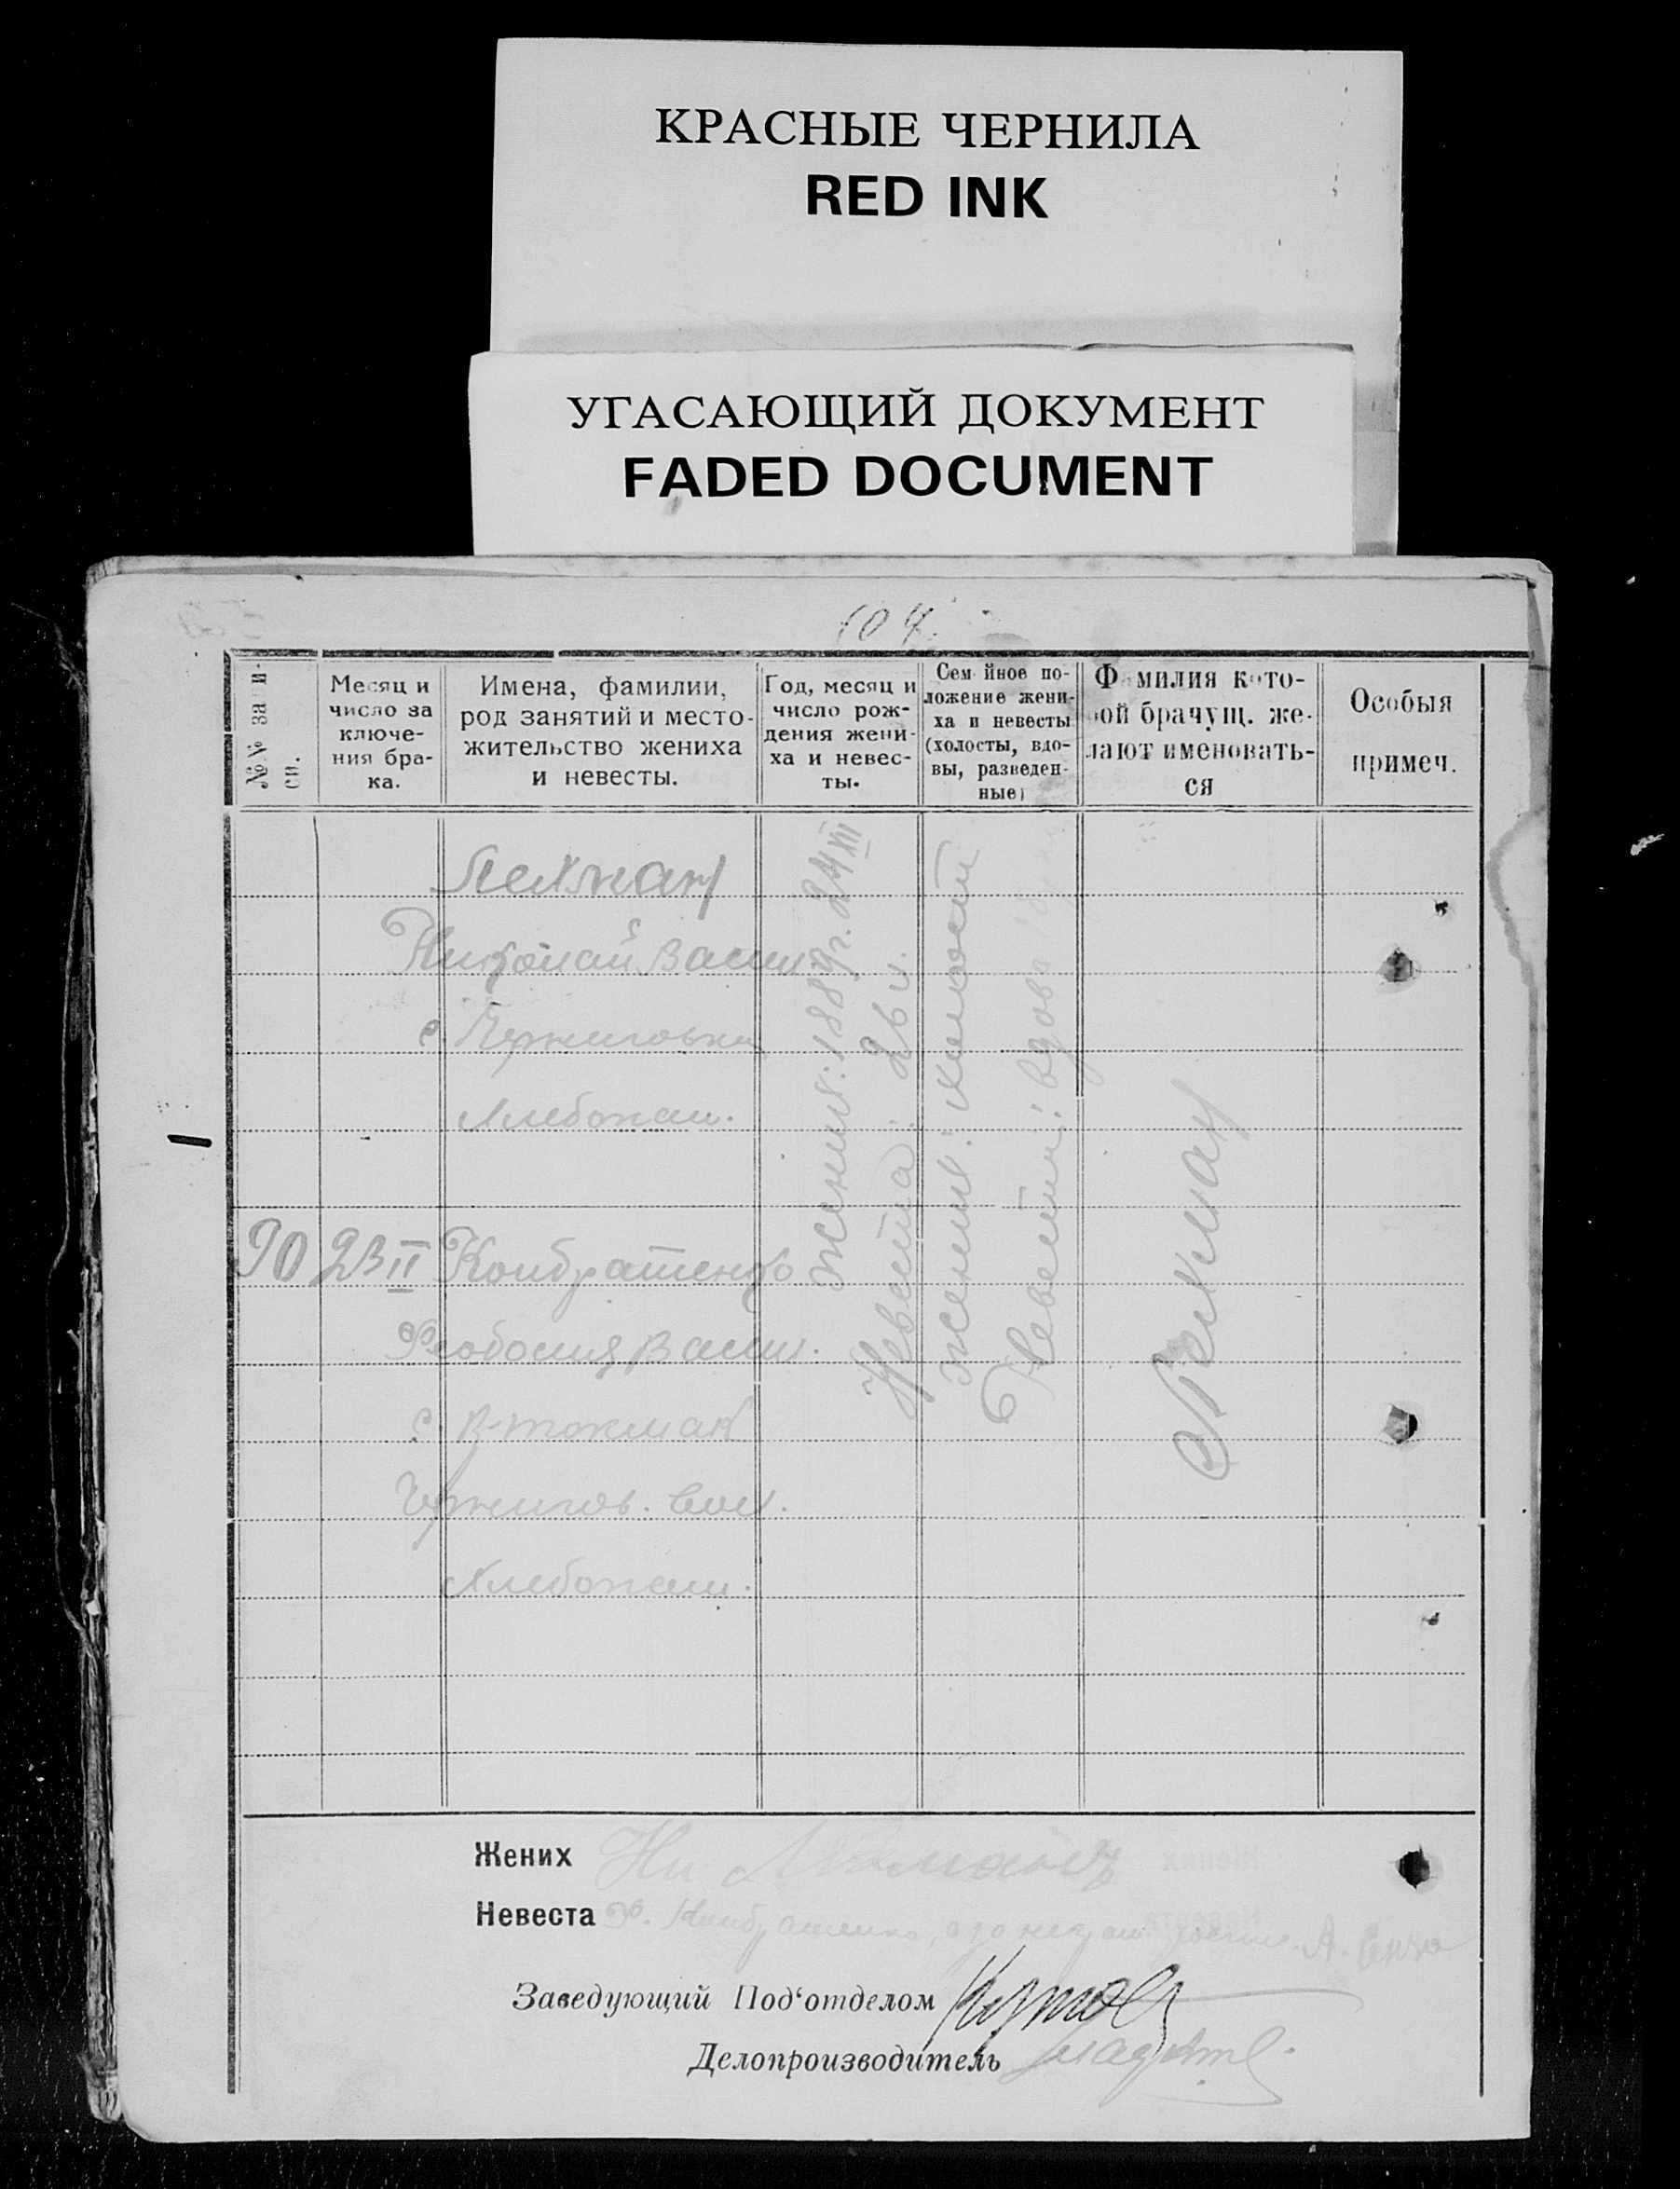 КРАСНЫЕ ЧЕРНИЛА
RED INK
УГАСАЮЩИЙ ДОКУМЕНТ
FADED DOCUMENT
104.
№№ за и-
сп.
Месяц и
число за
ключе-
ния бра-
ка.
Имена, фамилии,
род занятий и место-
жительство жениха
и невесты.
Год, месяц и
число рож-
дения жени-
ха и невес-
ты.
Сем йное по-
ложение жени-
ха и невесты
(холосты, вдо-
вы, разведен-
ные)
Ф милия кото-
ой брачущ. же-
лают именовать-
ся
Особыя
примеч.
Николай Васил.
с. Черниговка
Хлебопаш.
90 23 II Кондратенко
Феодосия Васил.
с. В-токмак
Чернигов. вол.
Хлебопаш.
жених: 1889 г. 24 XII
Невеста: 26 л.
жених: холост
Невеста: вдова
Жених
Невеста Ф. Кондратенко,
Заведующий Под‘отделом
Делопроизводитель